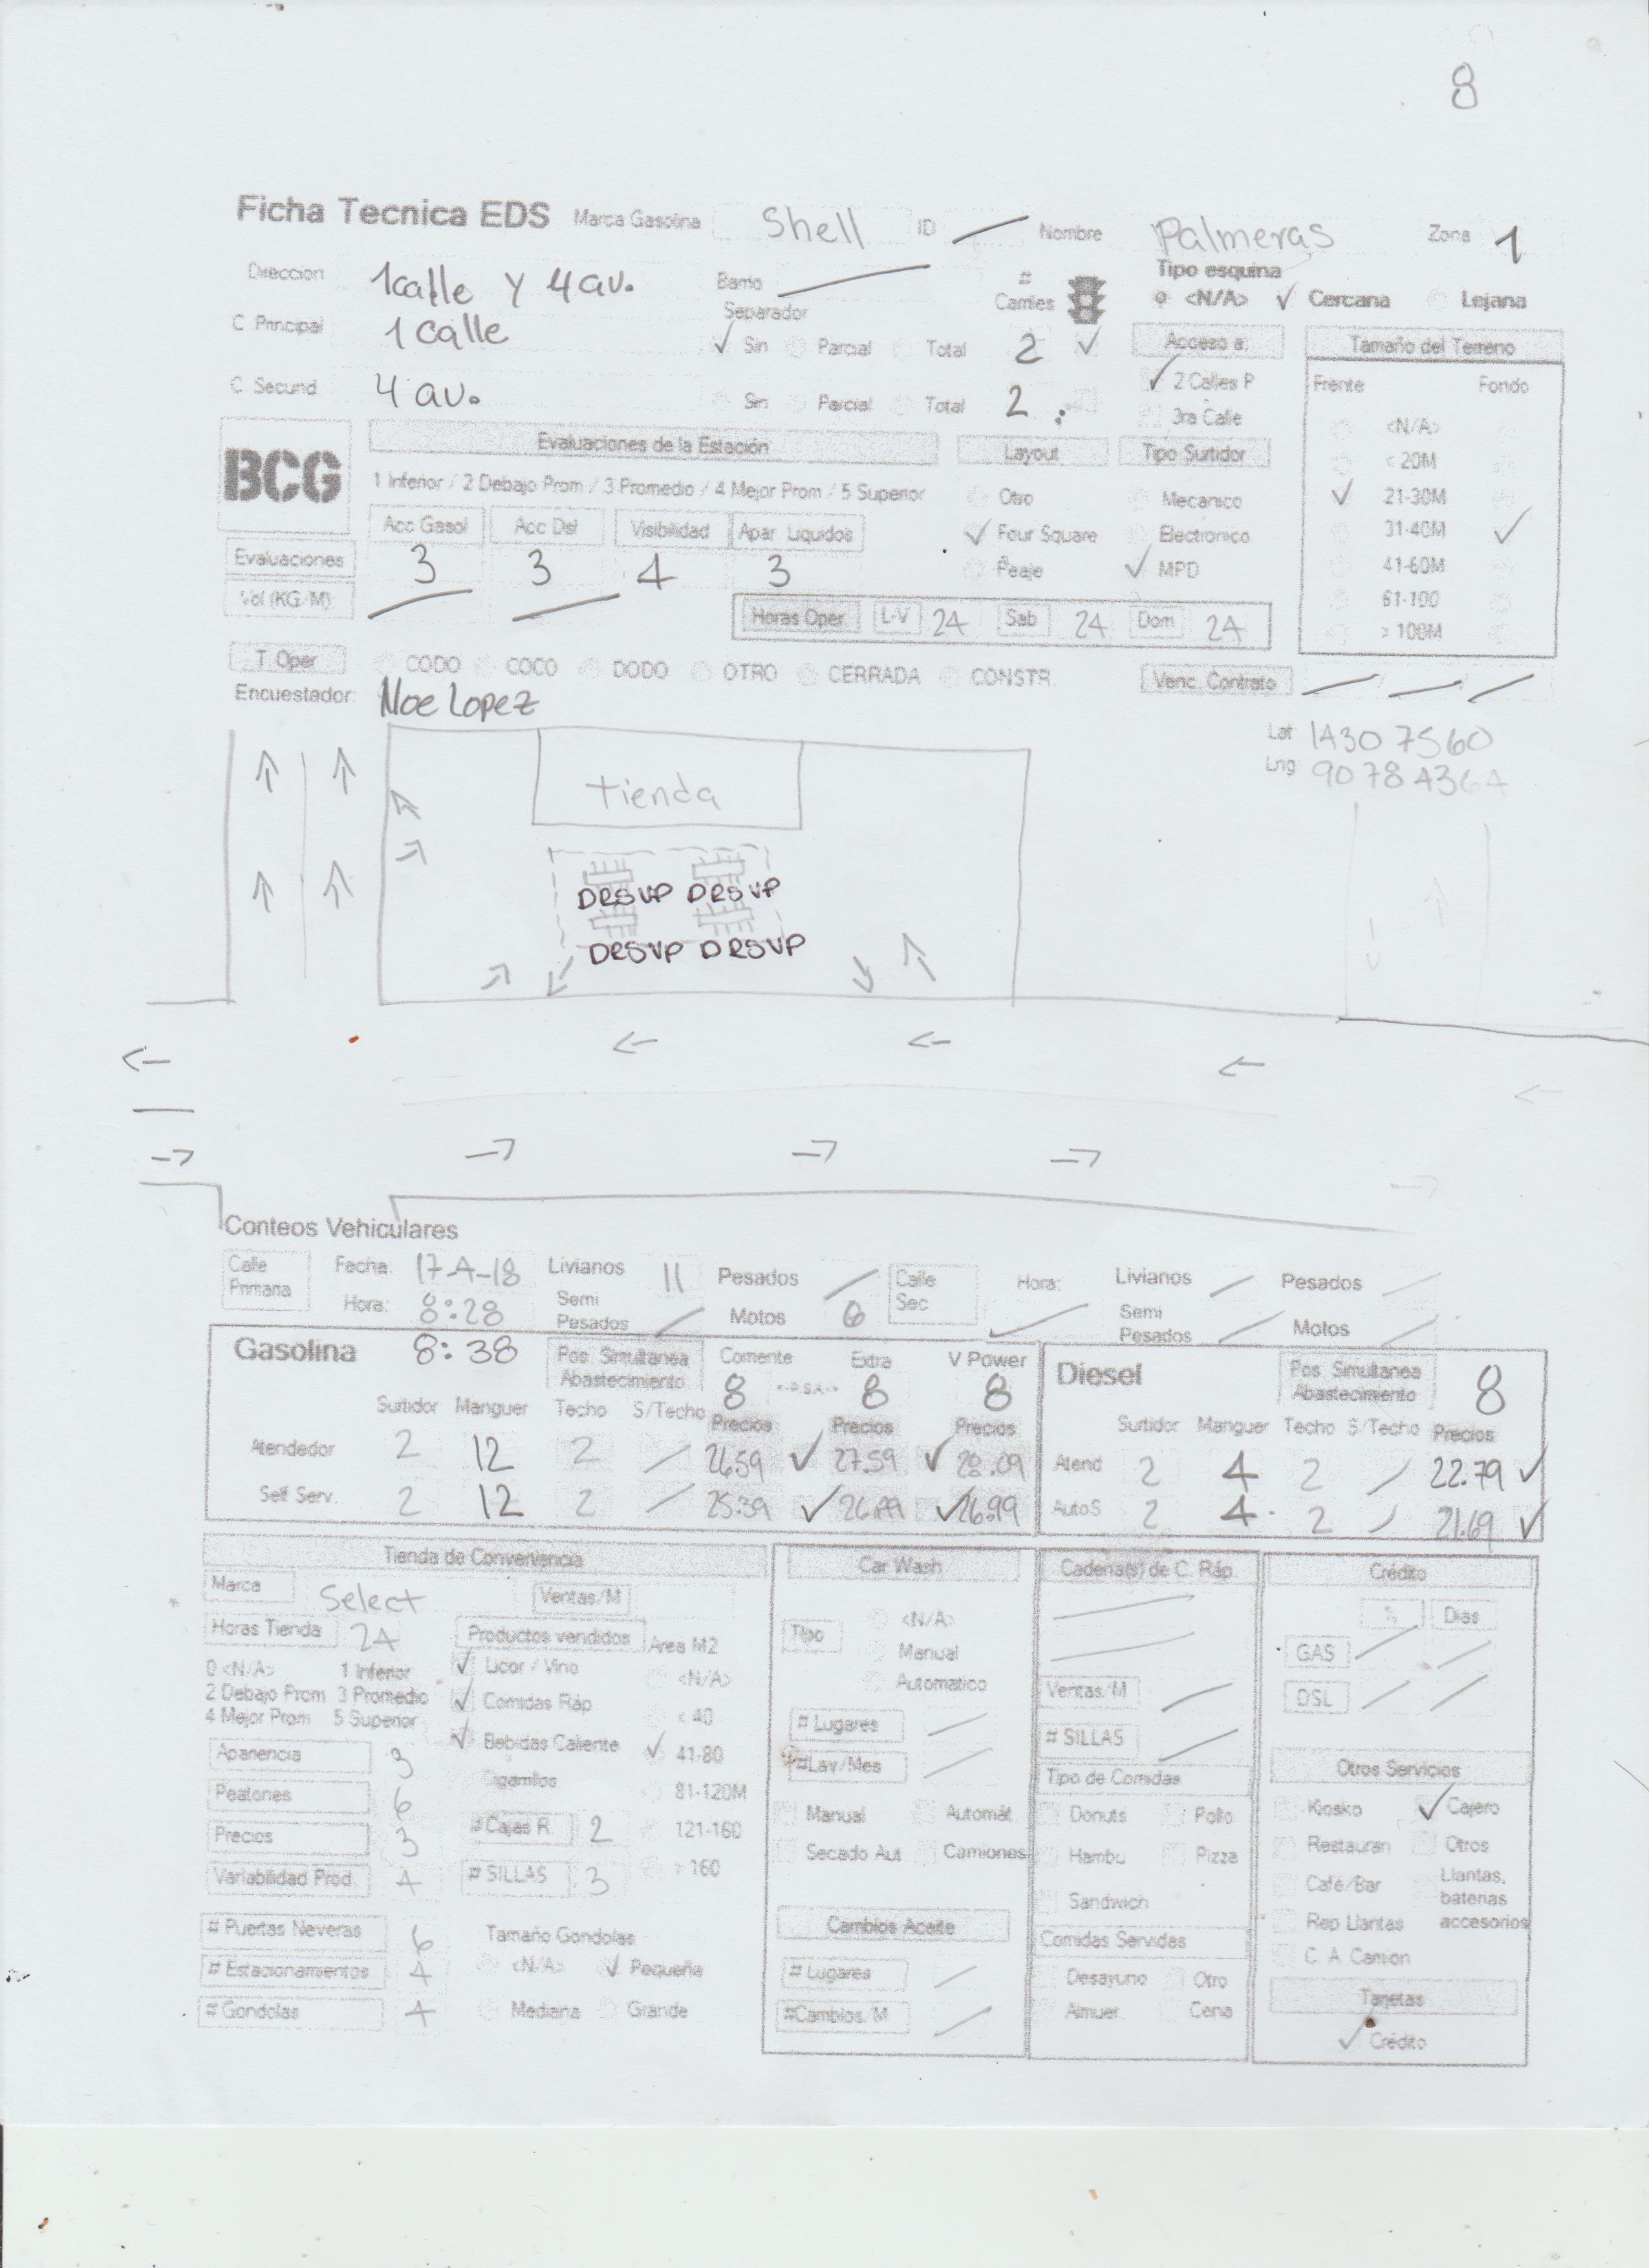 8
Ficha Tecnica EDS Marca Gasolina Shell ID Nombre Palmeras Zona 1
Direccion 1 calle y 4 av. Barrio # Carriles Tipo esquina
<N/A> Cercana Lejana
C. Principal 1 calle Separador Sin Parcial Total 2 Acceso a: Tamaño del Terreno
C. Secund. 4 av. Sin Parcial Total 2 2 Calles P Frente Fondo
3ra Calle <N/A>
BCG Evaluaciones de la Estación Layout Tipo Surtidor < 20M
1 Inferior / 2 Debajo Prom / 3 Promedio / 4 Mejor Prom / 5 Superior Otro Mecanico 21-30M
Acc Gasol Acc Dsl Visibilidad Apar Liquidos Four Square Electronico 31-40M
Evaluaciones 3 3 4 3 Peaje MPD 41-60M
Vol (KG/M) Horas Oper L-V 24 Sab 24 Dom 24 61-100
> 100M
T. Oper CODO COCO DODO OTRO CERRADA CONSTR. Venc. Contrato
Encuestador: Noe Lopez
Lat: 1430 7560
Lng: 90 78 4364
tienda
DRSVP DRSVP
DRSVP DRSVP
Conteos Vehiculares
Calle Primaria Fecha: 17-4-18 Livianos 11 Pesados Calle Sec Hora: Livianos Pesados
Hora: 8:28 Semi Pesados Motos 6 Semi Pesados Motos
Gasolina 8:38 Pos. Simultanea Abastecimiento Corriente Extra V Power Diesel Pos. Simultanea Abastecimiento 8
8 <-P.S.A.-> 8 8
Surtidor Manguer Techo S/Techo Precios Precios Precios Surtidor Manguer Techo S/Techo Precios
Atendedor 2 12 2 26.59 27.59 28.09 Atend 2 4 2 22.79
Self Serv. 2 12 2 25.39 26.99 AutoS 2 4 2 21.69
Tienda de Conveniencia Car Wash Cadena(s) de C. Ráp. Crédito
Marca Select Ventas/M Tipo <N/A> % Dias
Horas Tienda 24 Productos vendidos Area M2 Manual GAS
0 <N/A> 1 Inferior Licor / Vino <N/A> Automatico Ventas/M DSL
2 Debajo Prom 3 Promedio Comidas Ráp < 40 # Lugares # SILLAS
4 Mejor Prom 5 Superior Bebidas Caliente 41-80 #Lav/Mes Tipo de Comidas Otros Servicios
Aparencia 3 Cigarrillos 81-120M Manual Automát Donuts Pollo Kiosko Cajero
Peatones 6 # Cajas R. 2 121-160 Secado Aut Camiones Hambu Pizza Restauran Otros
Precios 3 # SILLAS 3 > 160 Sandwich Café/Bar Llantas, baterias accesorios
Variabilidad Prod. 4 Rep Llantas
# Puertas Neveras 6 Tamaño Gondolas Cambios Aceite Comidas Servidas C. A. Camion
# Estacionamientos 4 <N/A> Pequeña # Lugares Desayuno Otro Tarjetas
# Gondolas 4 Mediana Grande #Cambios/M Almuer. Cena Crédito